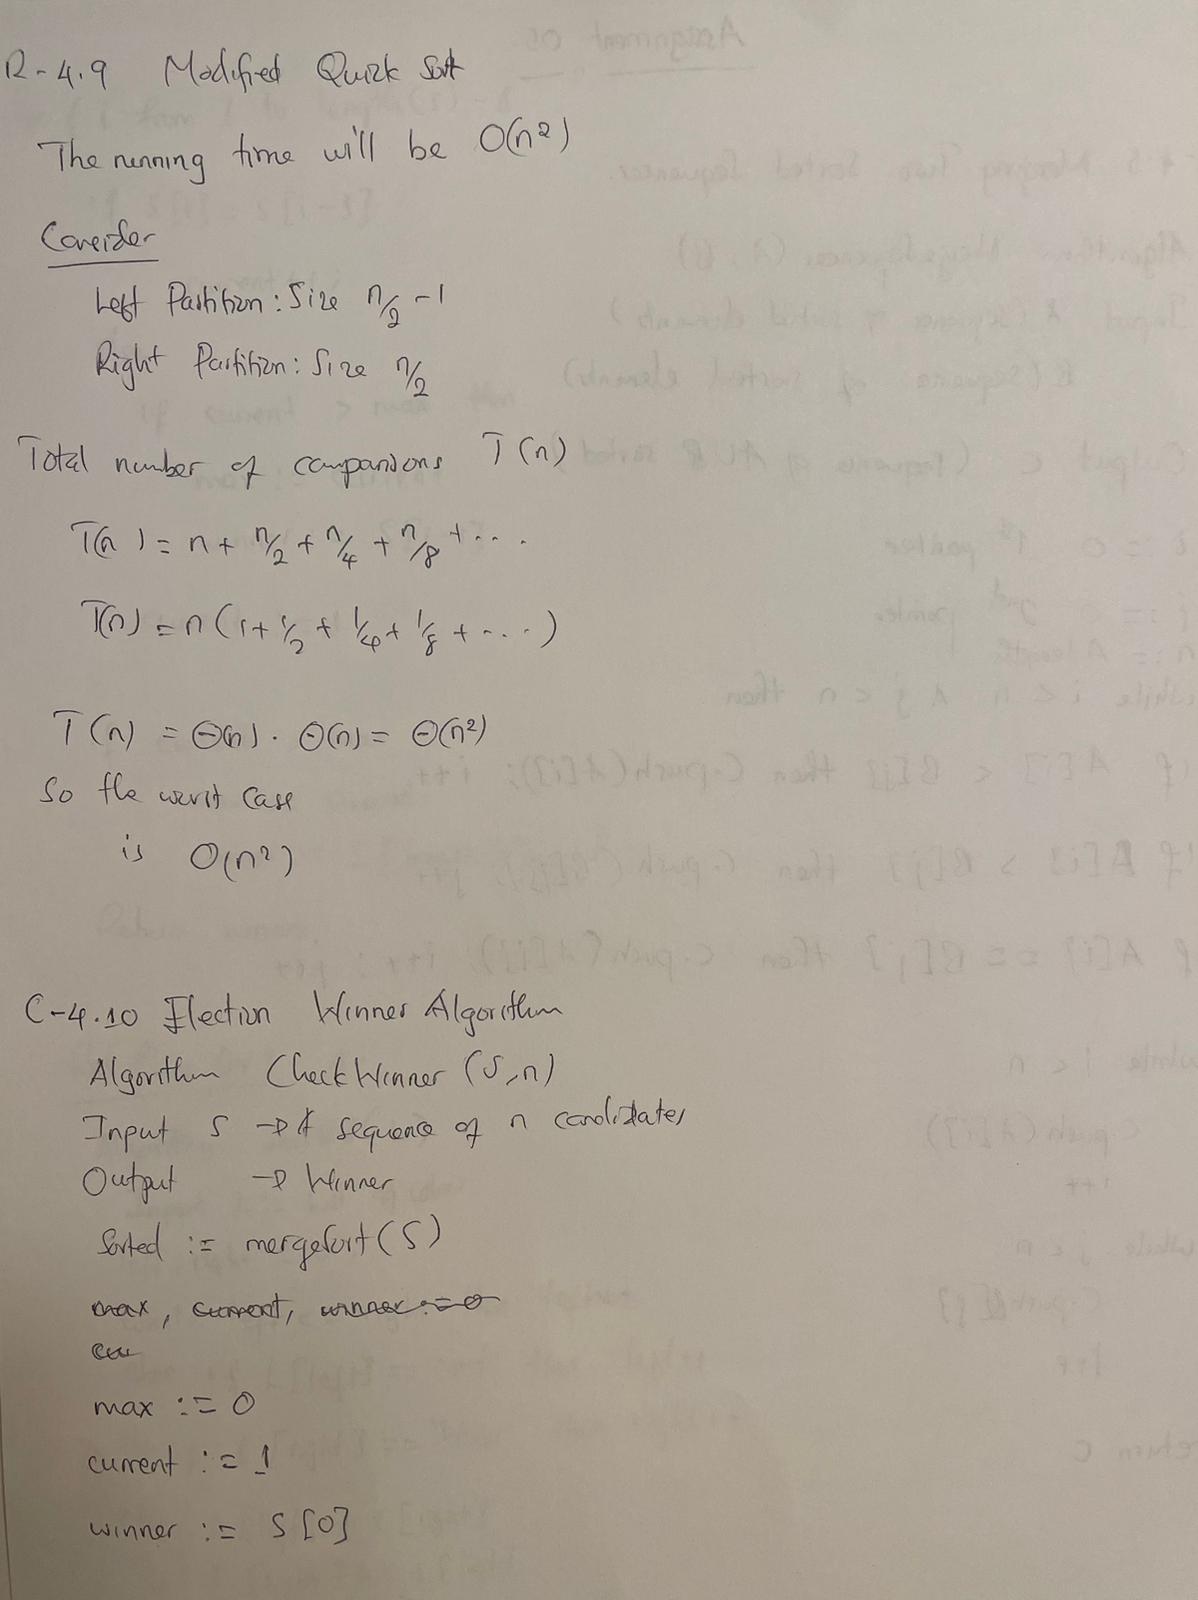 R-4.9 Modified Quick Sort
The running time will be O(n²)
Consider
Left Partition: Size n/2 -1
Right Partition: Size n/2
Total number of comparisons T(n)
T(n) = n + n/2 + n/4 + n/8 + ...
T(n) = n (1 + 1/2 + 1/4 + 1/8 + ...)
T(n) = Θ(n) . Θ(n) = Θ(n²)
So the worst case
is O(n²)
C-4.10 Election Winner Algorithm
Algorithm CheckWinner (S, n)
Input S → A sequence of n candidates
Output → Winner
Sorted := mergeSort(S)
max, current, winner := 0
cu
max := 0
current := 1
winner := S[0]